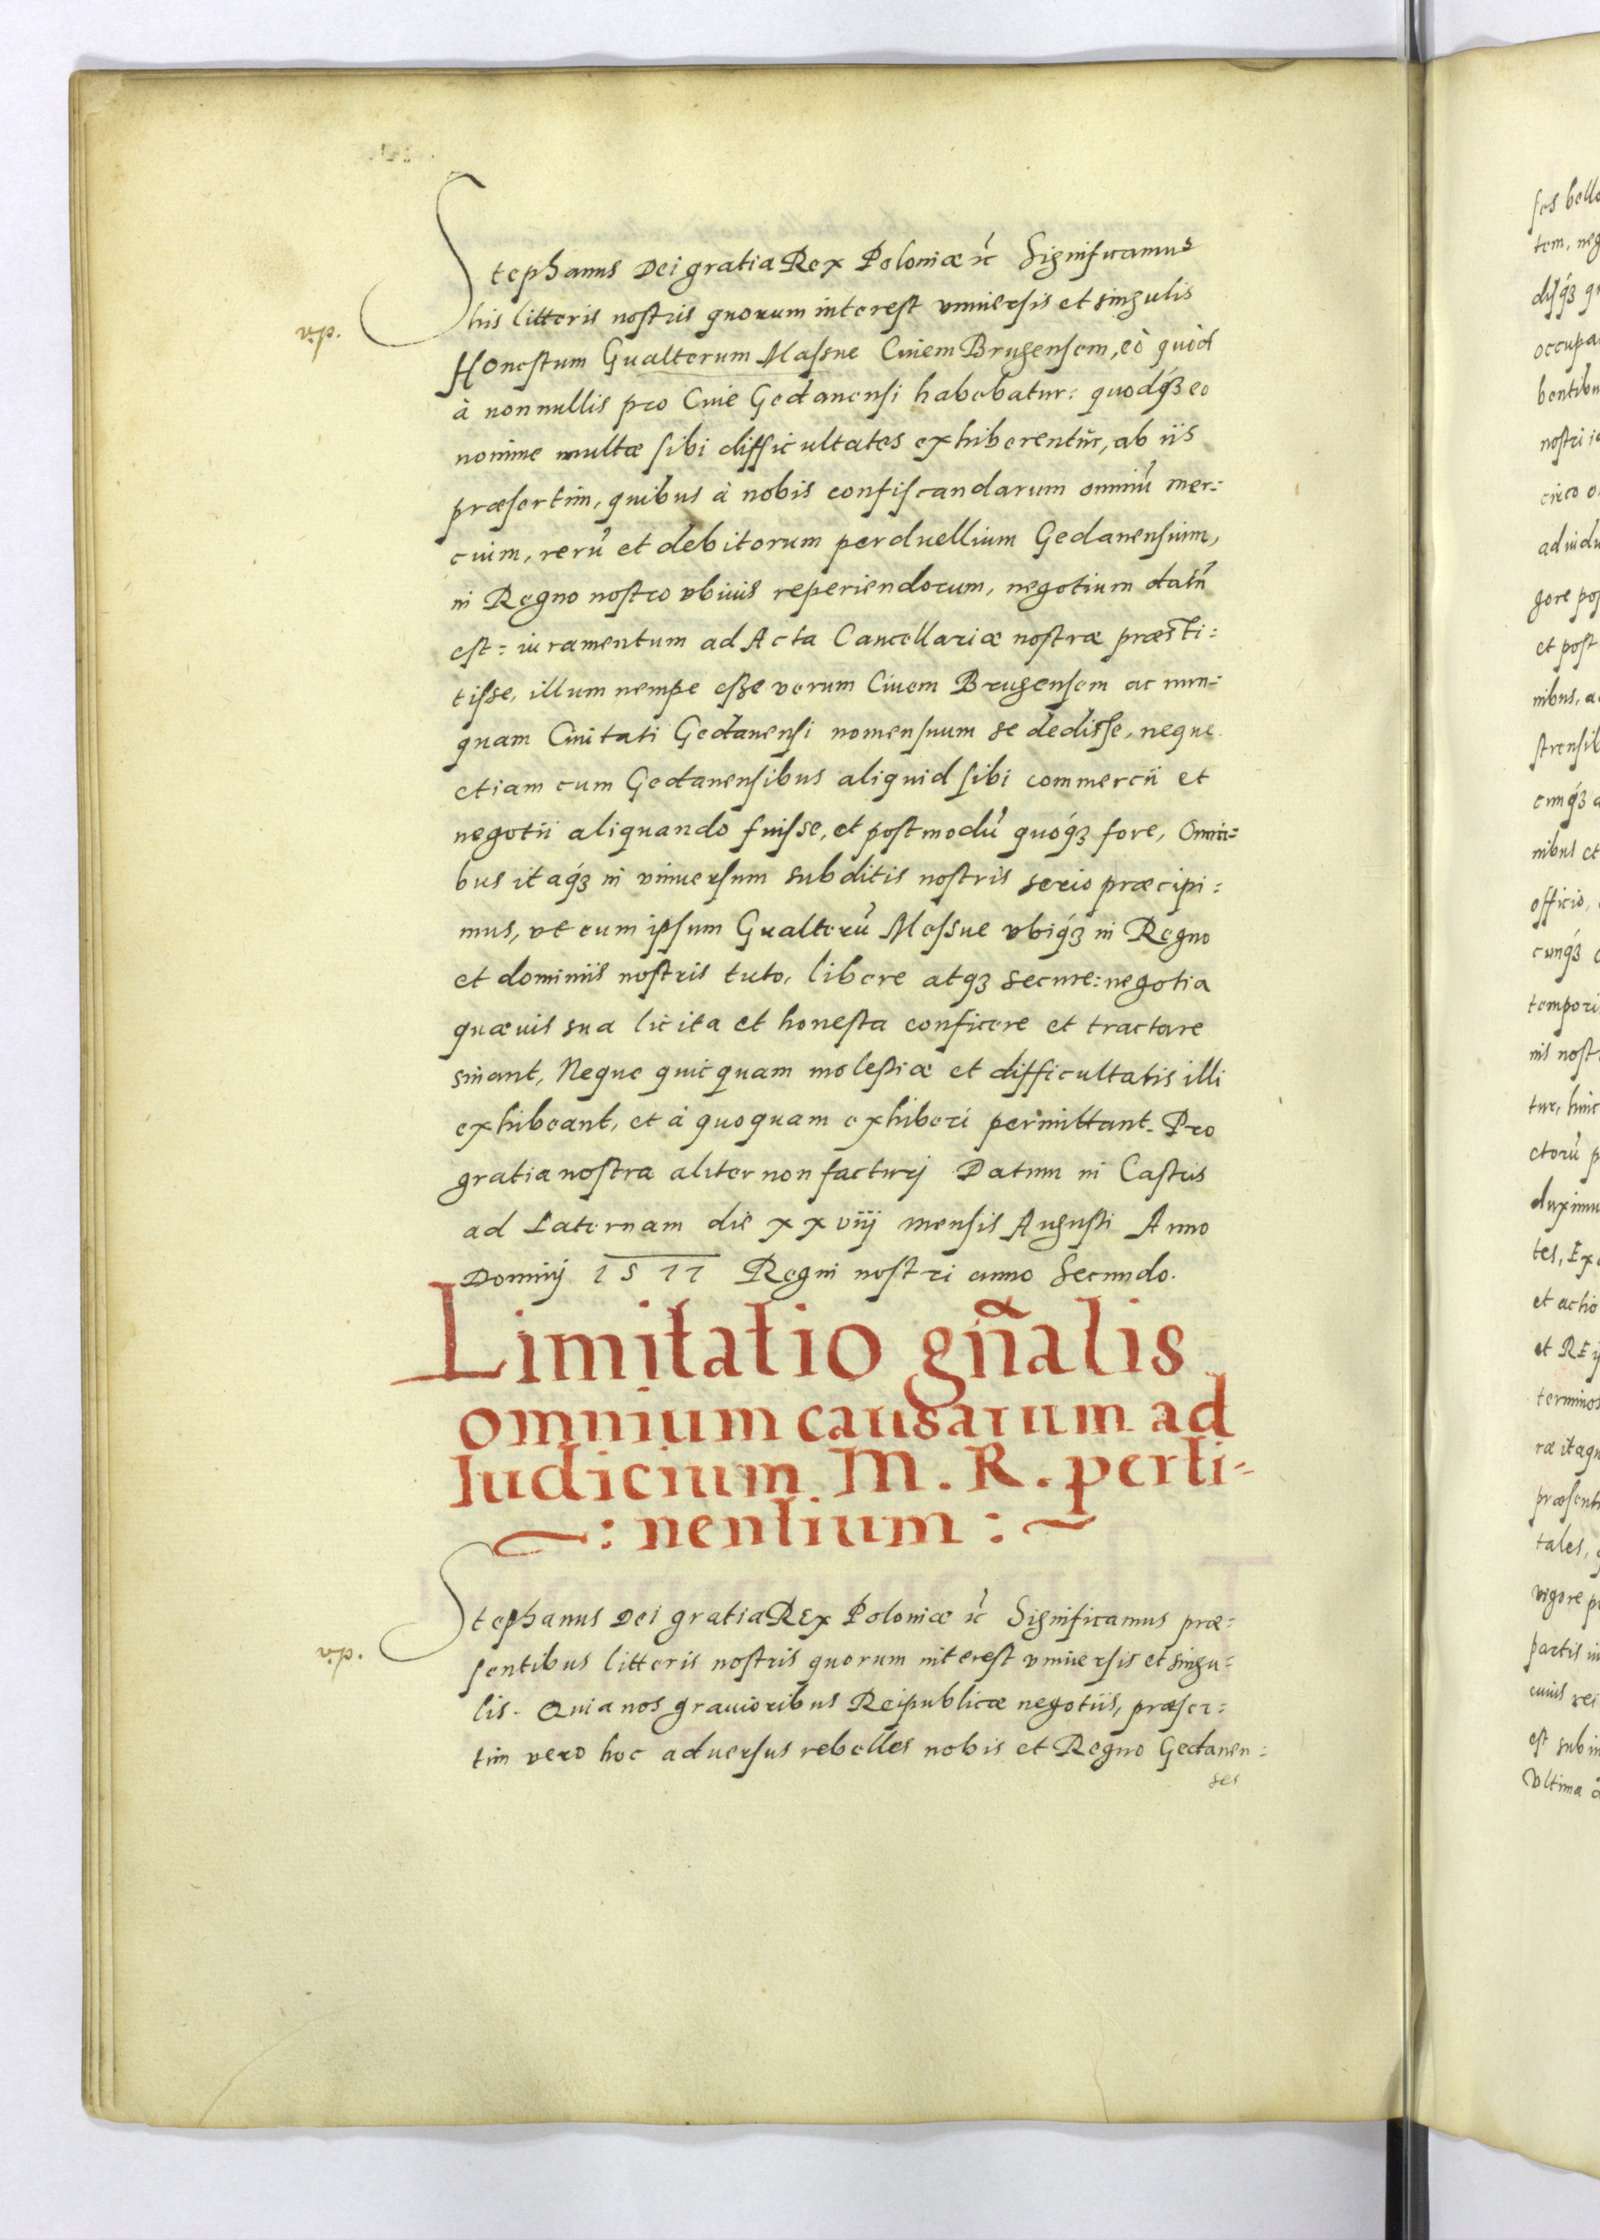 Stephanus Dei gratia Rex Poloniæ ꝛc Significamus
his litteris nostris quorum interest vniuersis et singulis
Honestum Gualterum Massue Ciuem Brugensem, eò quòd
à nonnullis pro Ciue Gedanensi habebatur: quodq́ꝫ eo
nomine multæ sibi difficultates exhiberentur, ab iis
præsertim, quibus à nobis confiscandarum omniũ mer:
cium, rerũ et debitorum perduellium Gedanensium,
in Regno nostro vbiuis reperiendorum, negotium datũ
est: iuramentum ad Acta Cancellariæ nostræ præsti:
tisse, illum nempe esse verum Ciuem Brugensem ac nun:
quam Ciuitati Gedanensi nomen suum se dedisse, neque
etiam cum Gedanensibus aliquid sibi commercii et
negotii aliquando fuisse, et postmodũ quoq́ꝫ fore, Omni:
bus itaq́ꝫ in vniuersum subditis nostris serio præcipi:
mus, vt eum ipsum Gualterũ Massue vbiq́ꝫ in Regno
et dominiis nostris tuto, libere atqꝫ secure: negotia
quæuis sua licita et honesta conficere et tractare
sinant, Neque quicquam molestiæ et difficultatis illi
exhibeant, et à quoquam exhiberi permittant. Pro
gratia nostra aliter non facturj Datum in Castris
ad Laternam die xxviij mensis Augusti Anno
Dominj 1577 Regni nostri anno Secundo.
Limitatio gñalis
omnium causarum ad
Iudicium M. R. perti-
: nentium :
Stephanus Dei gratia REx Poloniæ ꝛc Significamus præ:
sentibus litteris nostris quorum interest vniuersis et singu:
lis. Quia nos grauioribus Reipublicæ negotiis, præser:
tim vero hoc aduersus rebelles nobis et Regno Gedanen:
ses